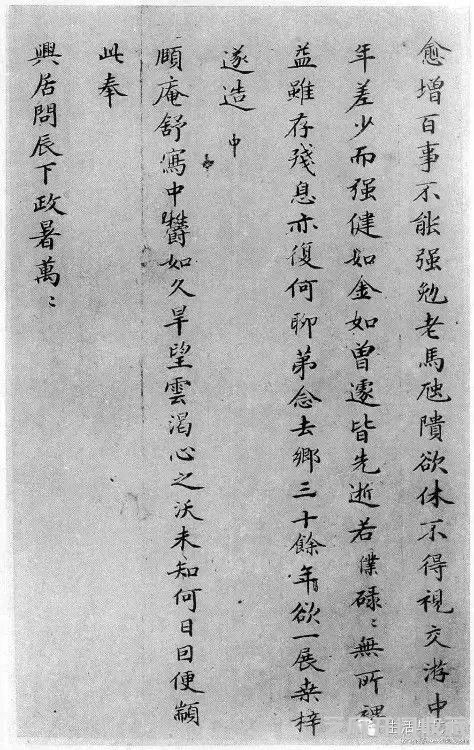 愈增百事不能强勉老馬虺隤欲休不得視交游中
年差少而强健如金如曾遽皆先逝若僕碌〻無所裨
益雖存殘息亦復何聊第念去鄉三十餘年欲一展桑梓
遂造
頤庵舒寫中欝如久旱望雲渴心之沃未知何日回便顓
此奉
興居問辰下政暑萬〻